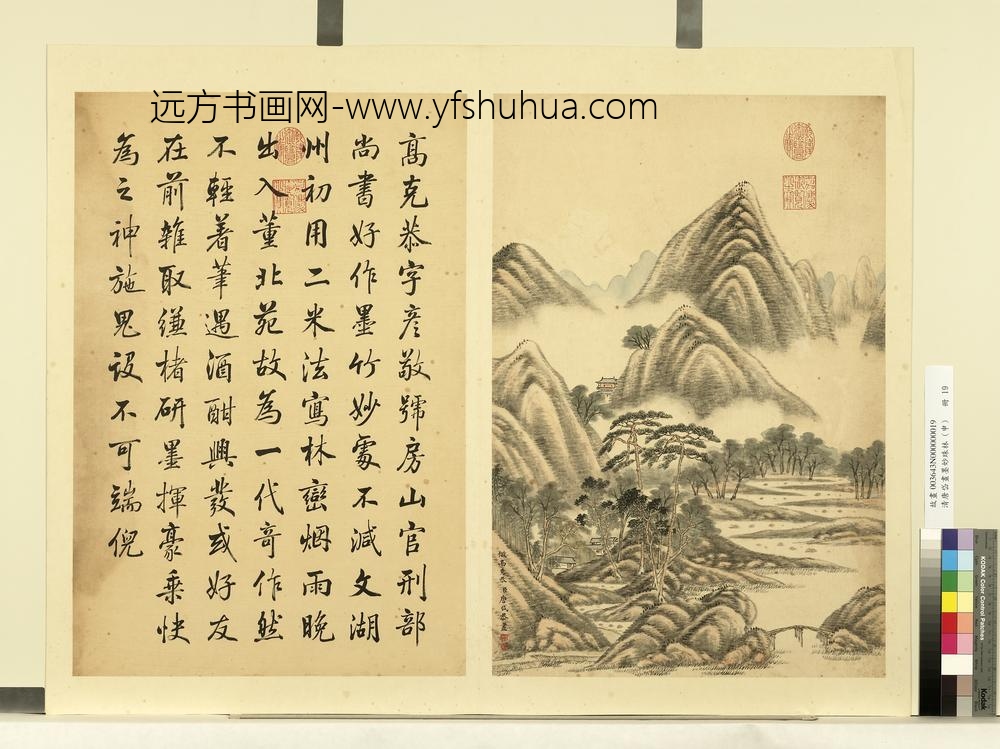 远方书画网-www.yfshuhua.com
髙克恭字彥敬號房山官刑部
尚書好作墨竹妙處不減文湖
州初用二米法寫林巒烟雨晚
出入董北苑故為一代奇作然
不輕着筆遇酒酣興發或好友
在前雜取縑楮研墨揮豪乗快
為之神施鬼設不可端倪
臣唐岱恭畫
故畫003643N000000019
清唐岱畫墨妙珠林(申) 冊 19
KODAK Color Control Patches
Kodak